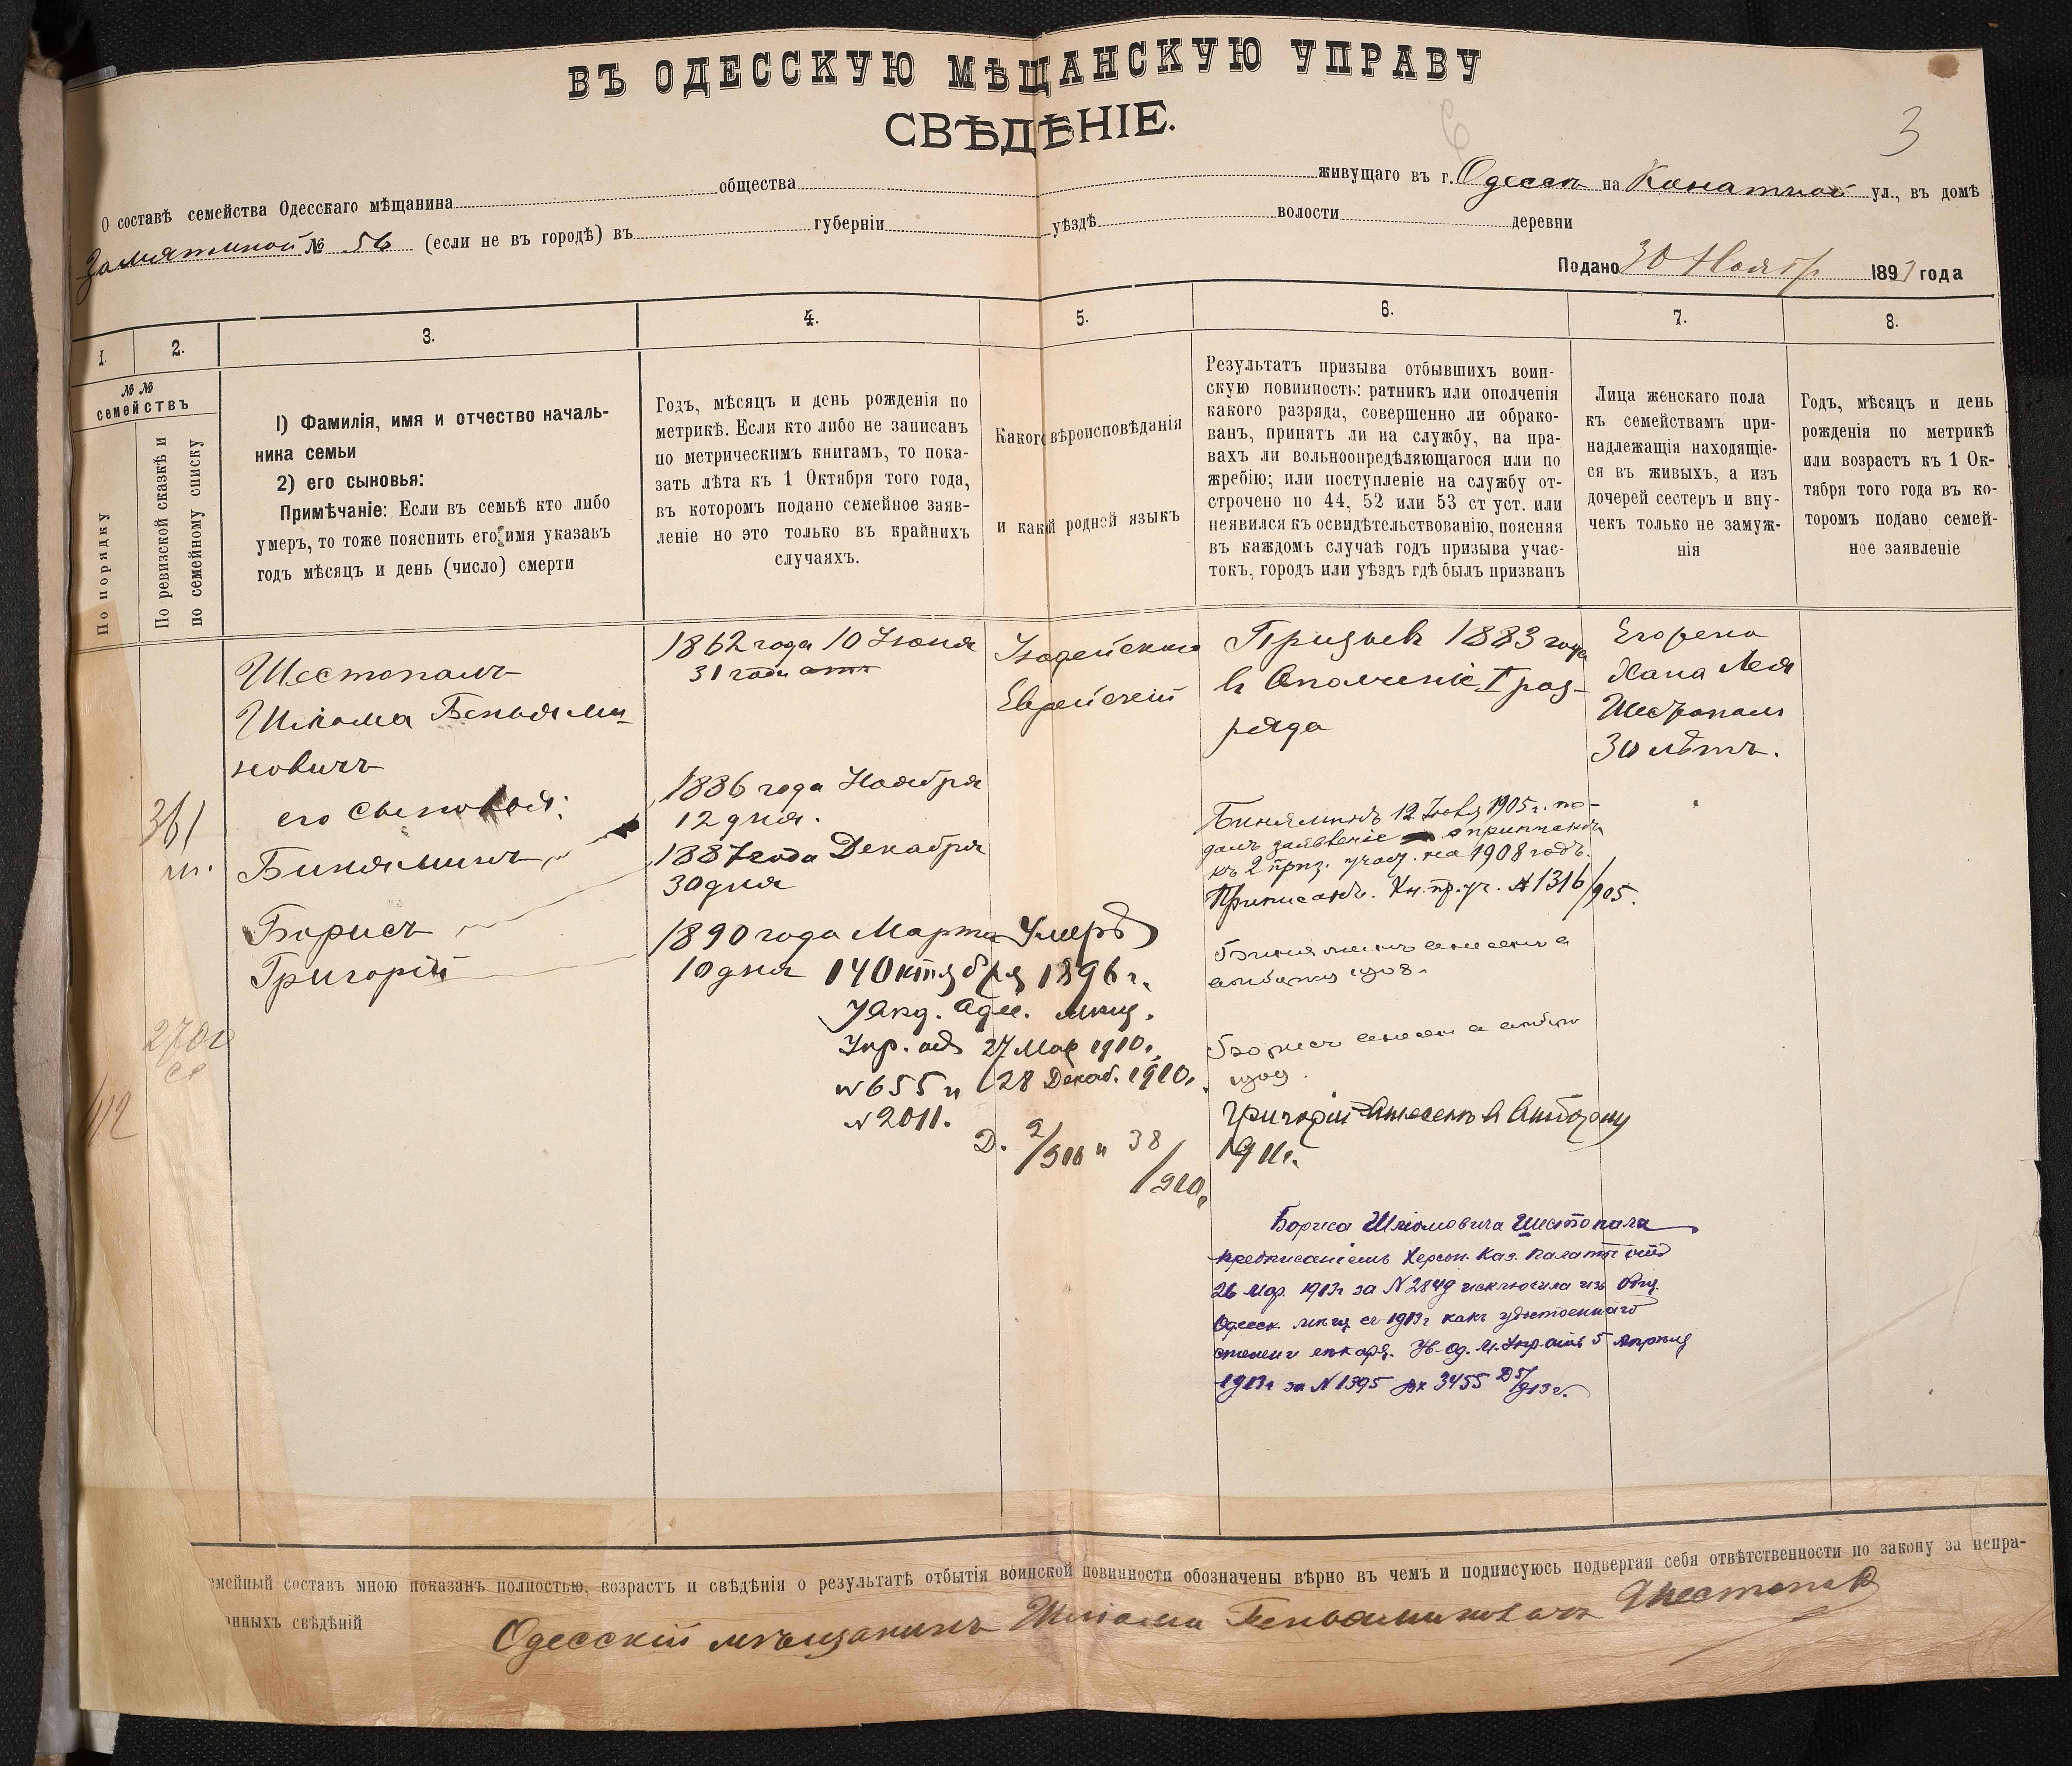 ВЪ ОДЕССКУЮ МѢЩАНСКУЮ УПРАВУ
СВѢДѢНІЕ.
3
О составѣ семейства Одесскаго мѣщанина общества живущаго въ г. Одессѣ на Канатной ул., въ домѣ
Замятиной № 56 (если не въ городѣ) въ губерніи уѣздѣ волости деревни
Подано 30 Ноябр 1893 года
1. 2. 3. 4. 5. 6. 7. 8.
№№ семействъ
По порядку
По ревизской сказкѣ и
по семейному списку
1) Фамилія, имя и отчество началь-
ника семьи
2) его сыновья:
Примѣчаніе: Если въ семьѣ кто либо
умеръ, то тоже пояснить его имя указавъ
годъ мѣсяцъ и день (число) смерти
Годъ, мѣсяцъ и день рожденія по
метрикѣ. Если кто либо не записанъ
по метрическимъ книгамъ, то пока-
зать лѣта къ 1 Октября того года,
въ которомъ подано семейное заяв-
леніе но это только въ крайнихъ
случаяхъ.
Какого вѣроисповѣданія
и какой родной языкъ
Результатъ призыва отбывшихъ воин-
скую повинность: ратникъ или ополченія
какого разряда, совершенно ли обрако-
ванъ, принятъ ли на службу, на пра-
вахъ ли вольноопредѣляющагося или по
жребію; или поступленіе на службу от-
строчено по 44, 52 или 53 ст уст. или
неявился къ освидѣтельствованію, поясняя
въ каждомъ случаѣ годъ призыва учас-
токъ, городъ или уѣздъ гдѣ былъ призванъ
Лица женскаго пола
къ семействамъ при-
надлежащія находящіе-
ся въ живыхъ, а изъ
дочерей сестеръ и вну-
чекъ только не замуж-
нія
Годъ, мѣсяцъ и день
рожденія по метрикѣ
или возрастъ къ 1 Ок-
тября того года въ ко-
торомъ подано семей-
ное заявленіе
361
Шестопалъ
Шлюма Беньями-
новичъ
его сыновья:
Биняминъ
Борисъ
Григорій
2700
412
1862 года 10 Іюня
31 года
1886 года Ноября
12 дня.
1887 года Декабря
30 дня
1890 года Марта
10 дня
Умеръ
14 Октября 1896 г.
Указ. Одес. мѣщ.
Упр. отъ 27 Мар 1910г.
№ 655 и 28 Декаб. 1910г.
№ 2011.
Д. 2/910 и 38/910г.
Іюдейскаго
Еврейскій
Призывъ 1883 года
въ Ополченіе I раз-
ряда
Биняминъ 12 1905 г. по-
далъ заявленіе о припискѣ
къ 2 приз. участ. на 1908 годъ.
Приписанъ. Кн. пр. уч. № 1316/905.
Биняминъ внесенъ в
алфавитъ 1908.
Борисъ внесен в алфав
1909.
Григорій внесенъ в алфавитъ
1911г.
Бориса Шлюмовича Шестопала
предписаніемъ Херсон. Каз. Палаты отъ
26 Мар. 1913г за № 2849 исключила изъ Общ.
Одесск. мѣщ съ 1913г какъ удостоеннаго
степени лѣкаря. Ув. Од. М. Упр отъ 5 Апрѣля
1913г за № 1395 Вх 3455 Д 5/913 г.
его жена
Хана Лея
Шестопалъ
30 лѣтъ.
емейный составъ мною показанъ полностью, возрастъ и свѣдѣнія о результатѣ отбытія воинской повинности обозначены вѣрно въ чемъ и подписуюсь подвергая себя отвѣтственности по закону за непра-
нныхъ свѣдѣній
Одесскій мѣщанинъ Шлюма Беньяминовичъ Шестопалъ